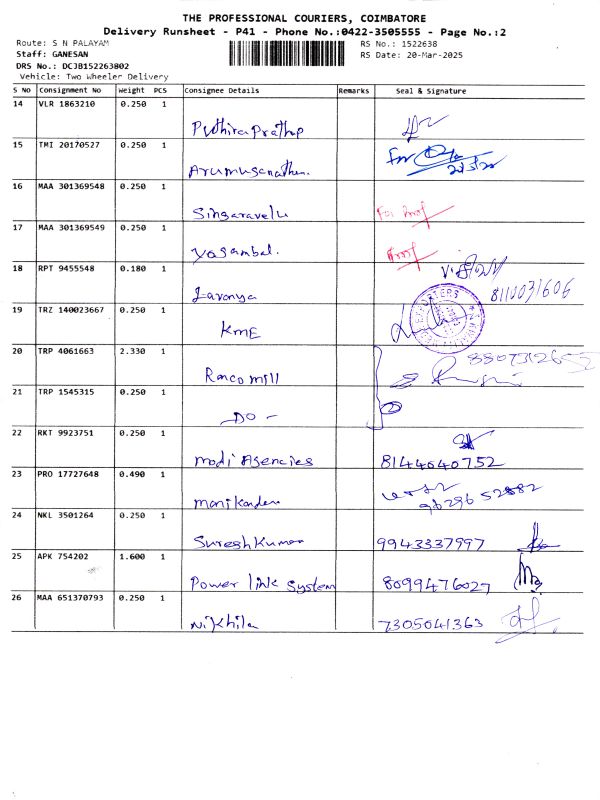 THE PROFESSIONAL COURIERS, COIMBATORE
Delivery Runsheet - P41 - Phone No.:0422-3505555 - Page No.:2
Route: S N PALAYAM
RS No.: 1522638
Staff: GANESAN
RS Date: 20-Mar-2025
DRS No.: DCJB152263802
Vehicle: Two Wheeler Delivery
S No Consignment No Weight PCS Consignee Details Remarks Seal & Signature
14 VLR 1863210 0.250 1
Puthira Prathap
15 TMI 20170527 0.250 1
Arumuganathan. For
16 MAA 301369548 0.250 1
Singaravelu For
17 MAA 301369549 0.250 1
Yogambal.
18 RPT 9455548 0.180 1
Lavanya 8110031606
19 TRZ 140023667 0.250 1
KME
20 TRP 4061663 2.330 1
Ranco Mill
21 TRP 1545315 0.250 1
- DO -
22 RKT 9923751 0.250 1
Modi Agencies 8144640752
23 PRO 17727648 0.490 1
Manikanden
24 NKL 3501264 0.250 1
Suresh Kumar 9943337997
25 APK 754202 1.600 1
Power link System 8099476027
26 MAA 651370793 0.250 1
Nikhila 7305041363